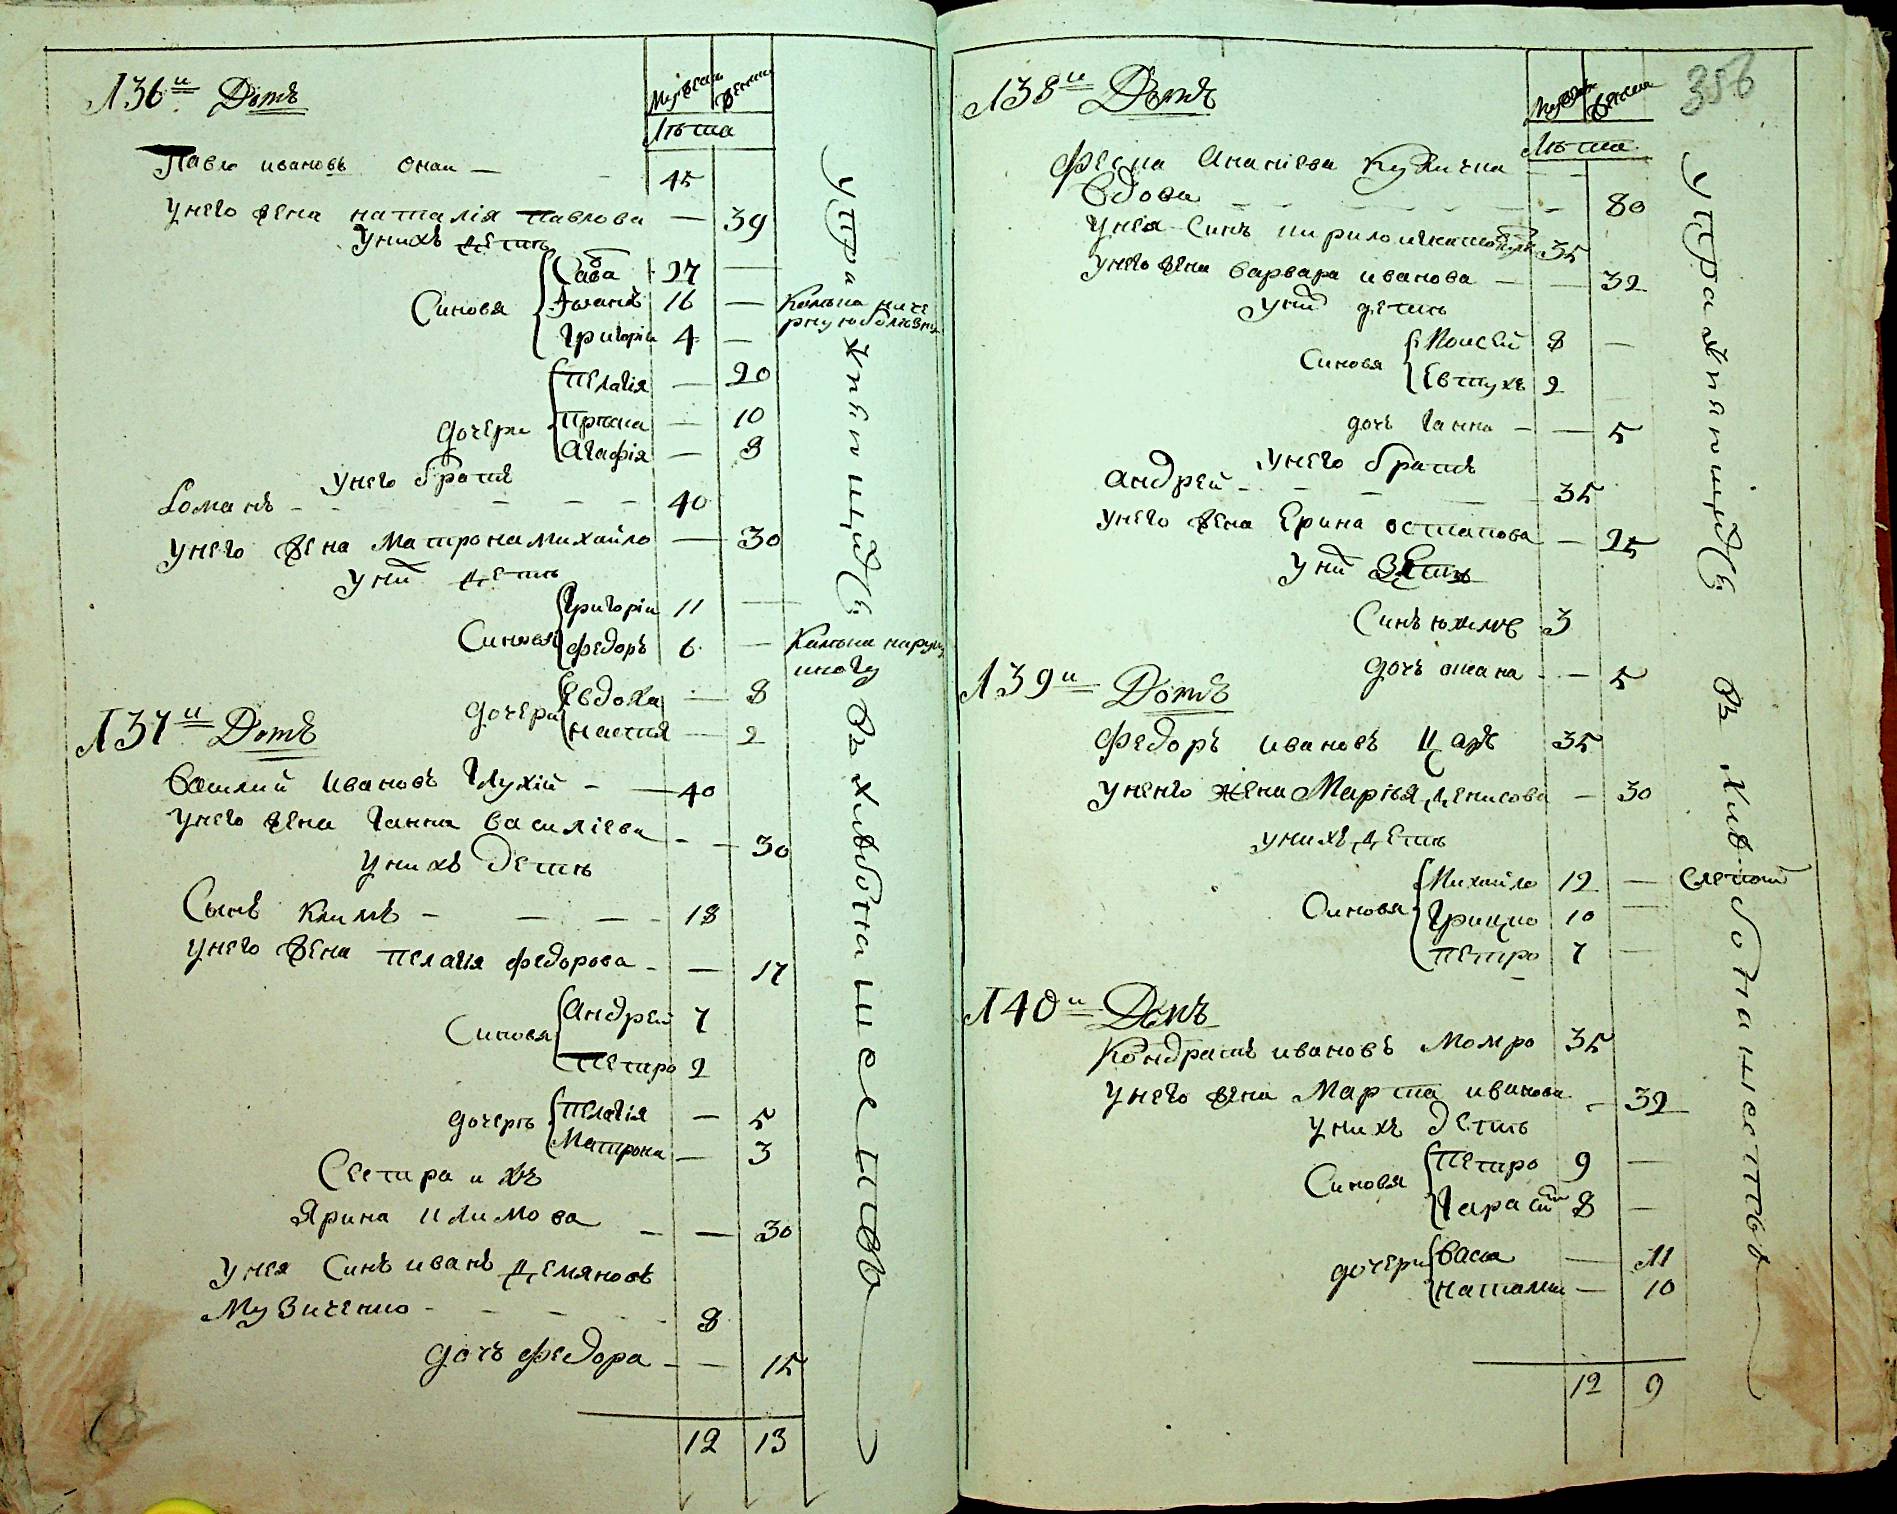 136й Домъ
Мужеска Женска
Лѣта
Павло ивановъ Онаи — — 45
Унего жена наталія павлова — 39
Унихъ дети
Синовя Сава 27 —
16 —
Григорій 4 —
дочери Пелагія — 20
— 10
Агафія — 8
Унего братъ
Романъ — — — — 40
Унего жена Матрона Михайло — 30
Уних дети
Синовя Григорій 11 —
Федоръ 6 —
дочери Евдоха — 8
Настия — 2
137й Домъ
Василий Ивановъ Глухій — — 40
Унего жена Ганна Василіева — — 30
Унихъ дети
Сынъ Климъ — — — 18
Унего жена пелагія федорова — — 17
Синовя Андрей 7
Петро 2
дочерѣ Пелагія — 5
Матрона — 3
Сестра ихъ
Ярина Климова — — 30
Унея Синъ иванъ Демяновъ
Музиченко — — — — 8
дочъ федора — — 15
12 13
упражняющийся въ хлѣбопашестве
138й Домъ
356
Мужеска Женска
Лѣта
Фесна Ананіева
Вдова — — — — — 80
Унея Синъ кирило 35
Унего жена варвара иванова — — 32
Уних дети
Синовя Моисей 8 —
Евтухъ 2
дочъ Ганна — — 5
Унего братъ
Андрей — — — — 35
Унего жена Ерина остапова — 25
Уних дети
Синъ юхимъ 3
дочъ — — 5
139й Домъ
Федоръ ивановъ 35
Унего жена Марія Денисова — 30
унихъ дети
Синовя Михайло 12 — слепой
Грицко 10 —
Петро 7 —
140й Домъ
Кондратъ ивановъ Мокро 35
Унего жена Марта иванова — 32
Унихъ дети
Синовя Петро 9 —
Гарасим 8 —
дочери Васса — 11
Наталия — 10
12 9
упражняющийся въ хлѣбопашестве